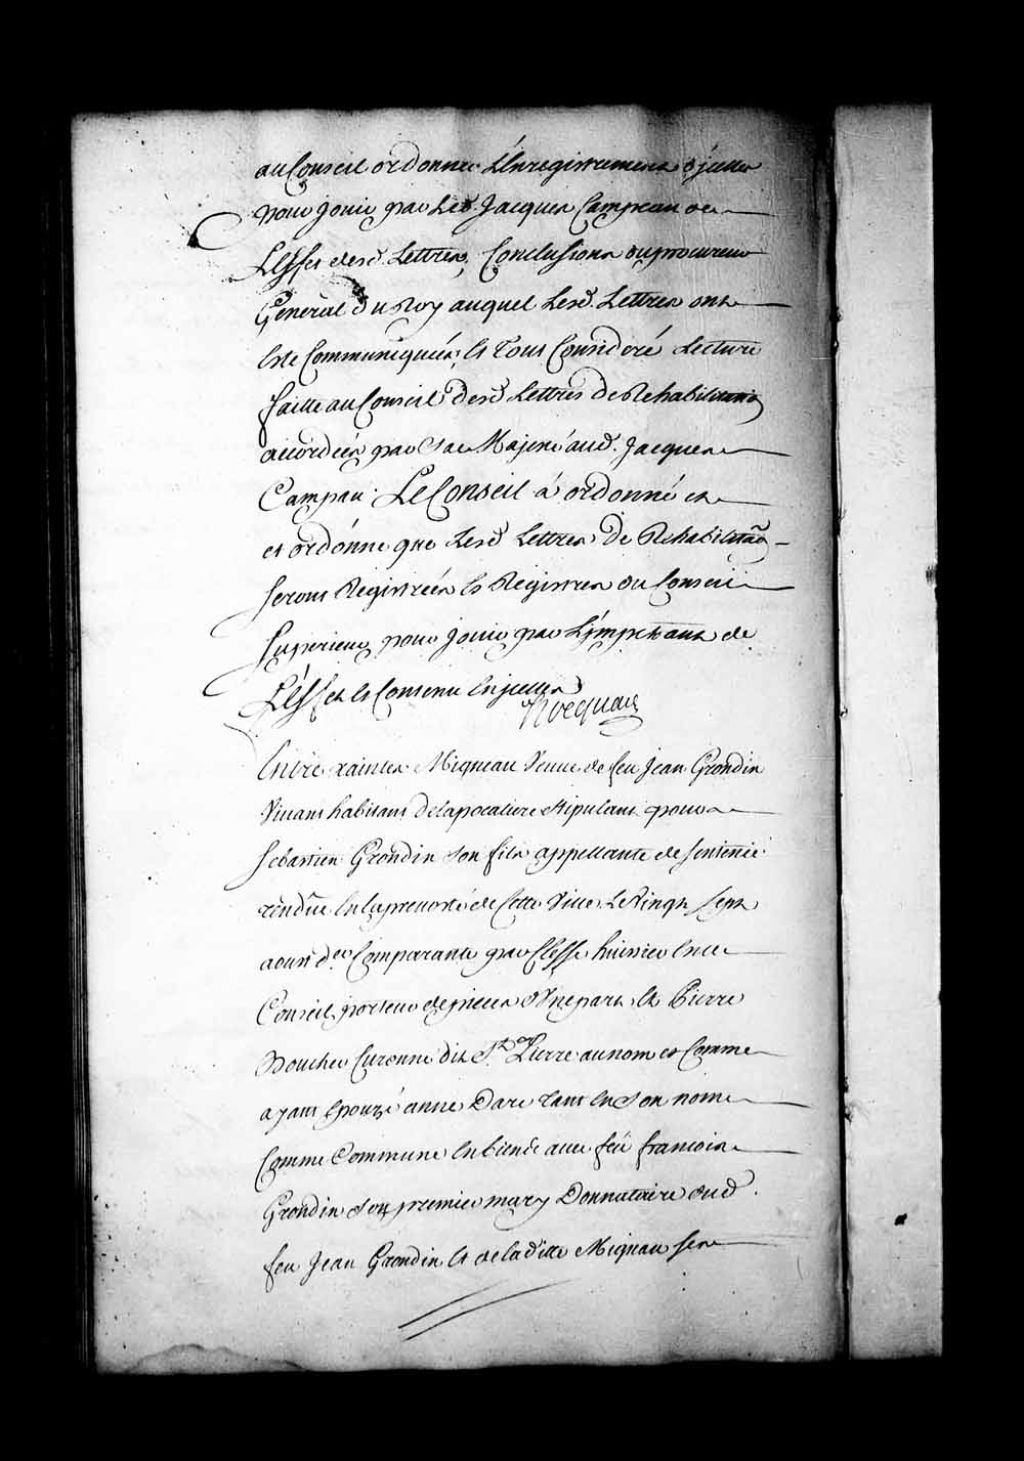 au Conseil ordonner L'Enregistrement d'jcelles
pour jouir par Led. Jacques Campeau de
L'effet desd. Lettres, Conclusions du procureur
General du Roy auquel Lesd. Lettres ont
Este Communiquées, Et Tout Consideré Lecture
faitte au Conseil desd Lettres de Rehabilitation
accordées par Sa Majesté aud. Jacques
Campau. Le Conseil à ordonné et
et ordonne que Lesd Lettres de Rehabilitaõn
seront Registrées Es Registres du Conseil
Superieur pour jouir par L'jmpetrant de
L'effet et Contenu En jcelles
Hocquart
Entre xaintes Migneau Veuve de feu Jean Grondin
Vivant habitant de Lapocatiere Stipulant pour
Sebastien Grondin son fils appellante de sentence
rendüe En La prevosté de Cette Ville Le Vingt sept
aoust der. Comparante par Clesse huissier En ce
Conseil porteur de pieces d'Vne part, Et Pierre
Boucher Curonne dit St. Pierre au nom et Comme
ayant Epouzé anne Dare tant En son nom
Comme Commune En biens avec feu francois
Grondin son premier mary Donnataire dud.
feu Jean Grondin Et de laditte Mignau ses